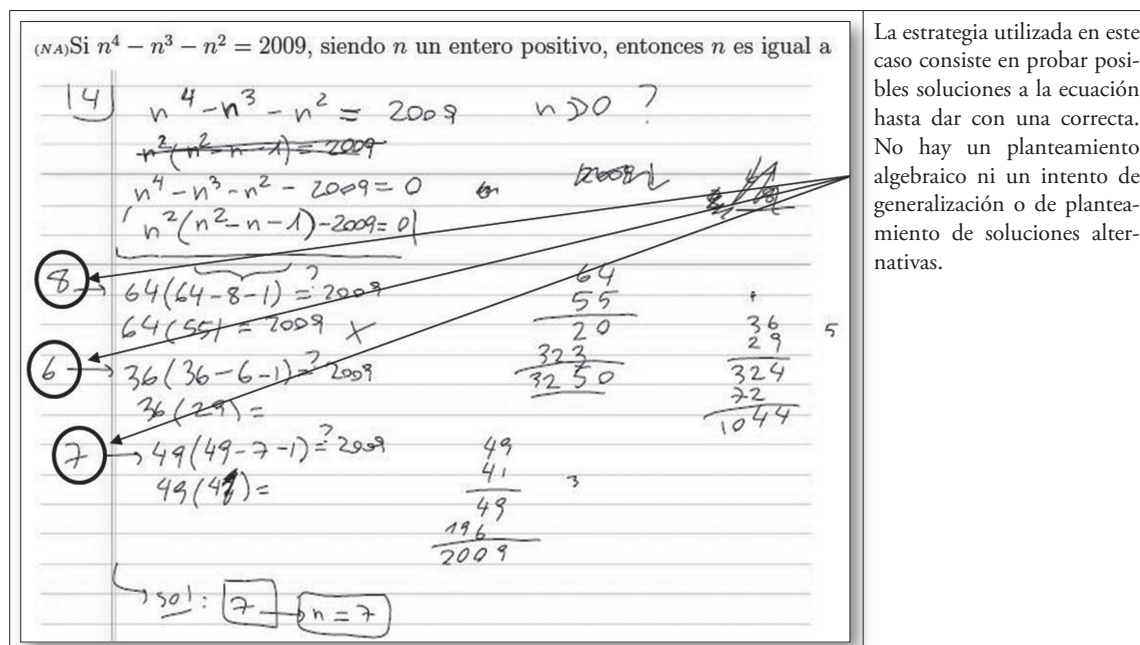 (NA)Si n⁴ − n³ − n² = 2009, siendo n un entero positivo, entonces n es igual a
14
n⁴ - n³ - n² = 2009 n > 0 ?
n²(n² - n - 1) = 2009
n⁴ - n³ - n² - 2009 = 0
n²(n² - n - 1) - 2009 = 0
8 → 64(64 - 8 - 1) =? 2009
64(55) = 2009 X
6 → 36(36 - 6 - 1) =? 2009
36(29) =
7 → 49(49 - 7 - 1) =? 2009
49(41) =
64
55
20
323
3250
36 5
29
324
72
1044
49
41 3
49
196
2009
→ sol: 7 → n = 7
La estrategia utilizada en este
caso consiste en probar posi-
bles soluciones a la ecuación
hasta dar con una correcta.
No hay un planteamiento
algebraico ni un intento de
generalización o de plantea-
miento de soluciones alter-
nativas.